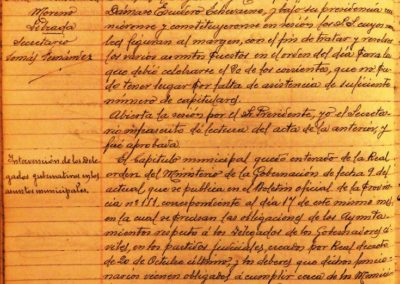 Moreno
Pedrada
Secretario
Tomás Fernández
Dámaso Escudero Colmenares, y bajo su presidencia se
reunieron y constituyeron en sesión los S.S. cuyos nom
bres figuran al margen, con el fin de tratar y resolver
los varios asuntos puestos en el orden del día para la
que debió celebrarse el 20 de los corrientes, que no pu
do tener lugar por falta de asistencia de suficiente
número de capitulares.
Abierta la sesión por el Sr. Presidente, yo el Secreta
rio infrascrito dí lectura del acta de la anterior, y
fue aprobada.
Intervención de los Dele
gados gubernativos en los
asuntos municipales.
El capítulo municipal quedó enterado de la Real
orden del Ministerio de la Gobernación de fecha 9 del
actual que se publica en el Boletín oficial de la provin
cia nº 151, correspondiente al día 17 de este mismo mes,
en la cual se precisan las obligaciones de los Ayunta
mientos respecto a los Delegados de los Gobernadores
civiles, en los partidos judiciales, creados por Real decreto
de 20 de Octubre último, y los deberes que dichos funcio
narios vienen obligados a cumplir cerca de los Munici